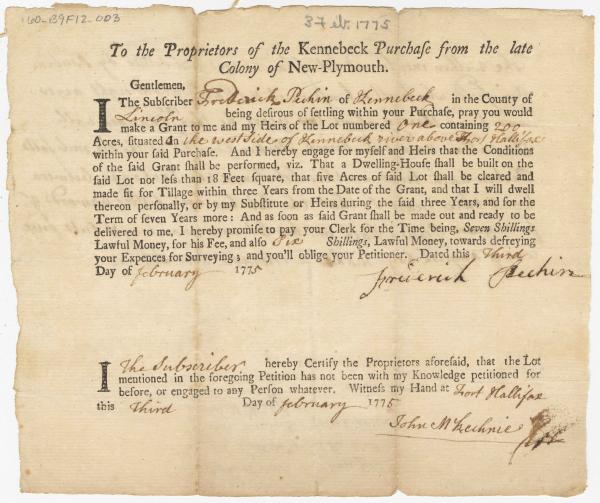 160-B9F12-003
3 Feb. 1775
To the Proprietors of the Kennebeck Purchase from the late
Colony of New-Plymouth.
Gentlemen,
I The Subscriber Frederick Pechin of Kennebeck in the County of
Lincoln being desirous of settling within your Purchase, pray you would
make a Grant to me and my Heirs of the Lot numbered One containing 200
Acres, situated on the west Side of Kennebeck river above Fort Hallifax
within your said Purchase. And I hereby engage for myself and Heirs that the Conditions
of the said Grant shall be performed, viz. That a Dwelling-House shall be built on the
said Lot not less than 18 Feet square, that five Acres of said Lot shall be cleared and
made fit for Tillage within three Years from the Date of the Grant, and that I will dwell
thereon personally, or by my Substitute or Heirs during the said three Years, and for the
Term of seven Years more: And as soon as said Grant shall be made out and ready to be
delivered to me, I hereby promise to pay your Clerk for the Time being, Seven Shillings
Lawful Money, for his Fee, and also Six Shillings, Lawful Money, towards defreying
your Expences for Surveying; and you'll oblige your Petitioner. Dated this Third
Day of february 1775
Frederick Pechin
I The Subscriber hereby Certify the Proprietors aforesaid, that the Lot
mentioned in the foregoing Petition has not been with my Knowledge petitioned for
before, or engaged to any Person whatever. Witness my Hand at Fort Hallifax
this Third Day of february 1775
John McKechnie